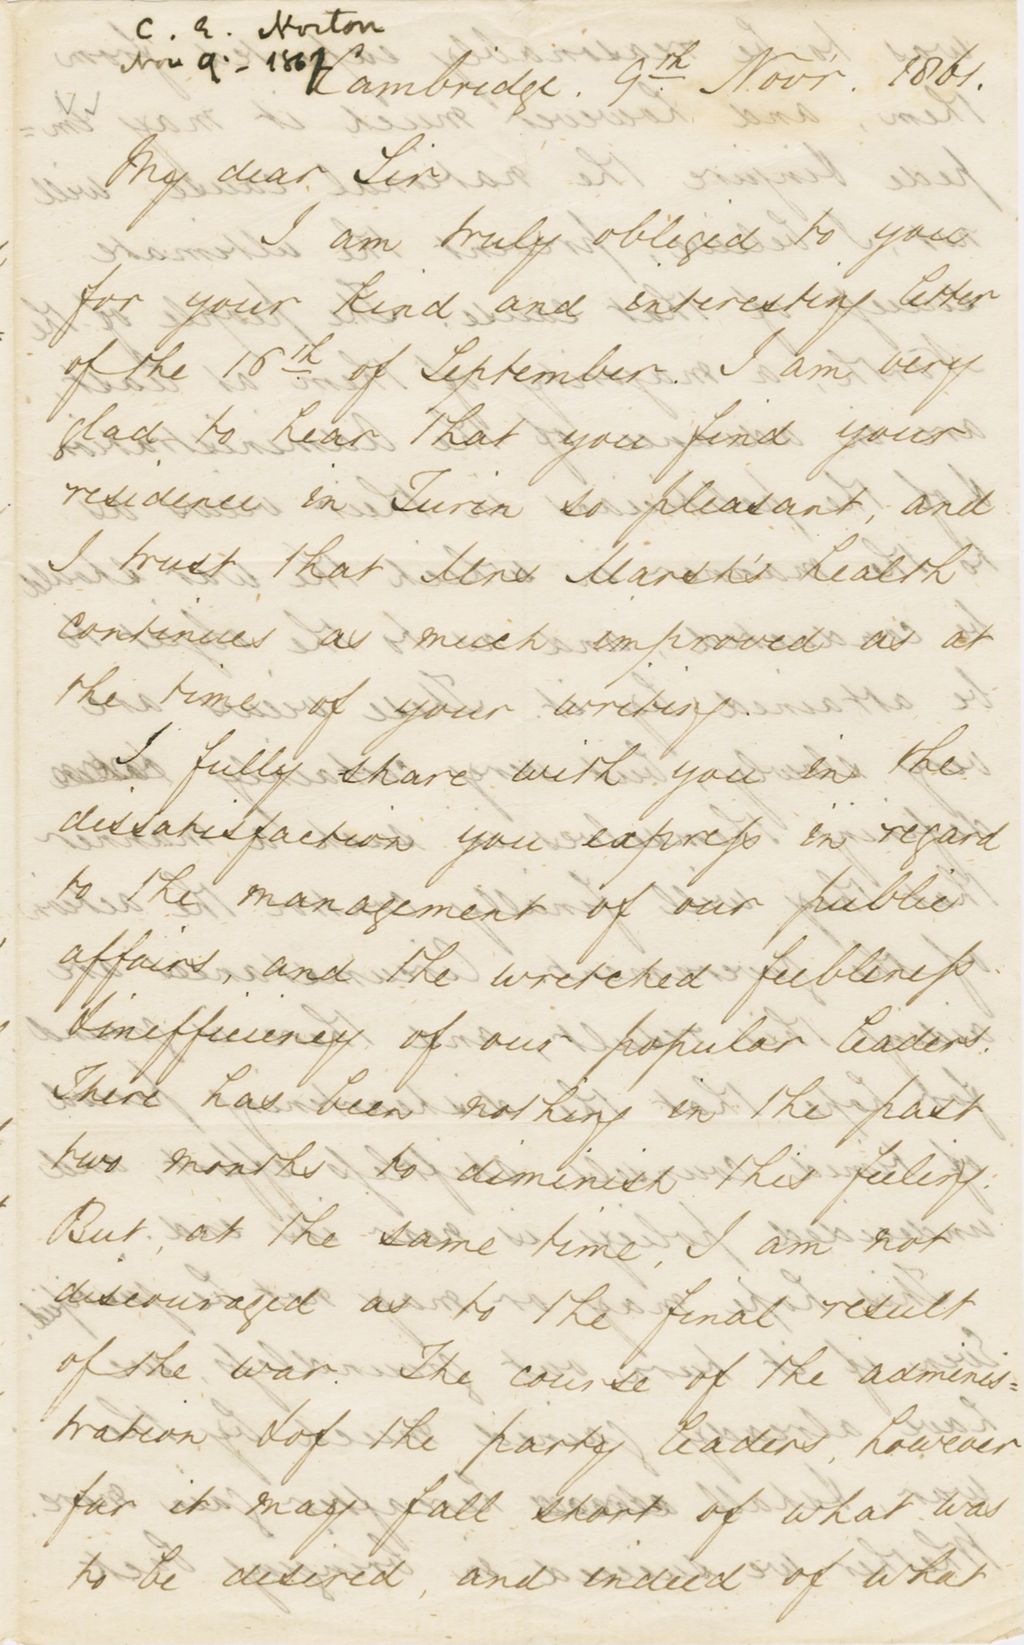 C. E. Norton
Nov 9. - 1861
Cambridge. 9th Nov'r. 1861.
My dear Sir
I am truly obliged to you
for your kind and interesting letter
of the 16th of September. I am very
glad to hear that you find your
residence in Turin so pleasant, and
I trust that Mrs Marsh's health
continues as much improved as at
the time of your writing.
I fully share with you in the
dissatisfaction you express in regard
to the management of our public
affairs, and the wretched feebleness
& inefficiency of our popular leaders.
There has been nothing in the past
two months to diminish this feeling.
But, at the same time, I am not
discouraged as to the final result
of the war. The course of the adminis=
tration & of the party leaders, however
far it may fall short of what was
to be desired, and indeed of what